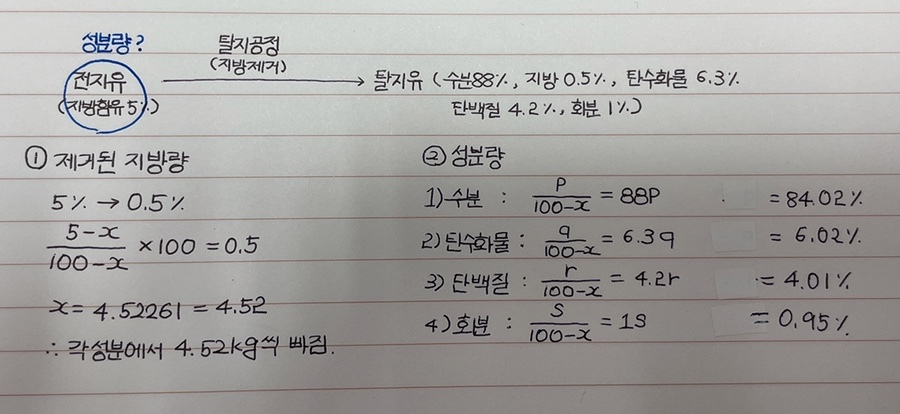 성분량?
탈지공정
(지방제거)
전지유 → 탈지유 (수분88%, 지방 0.5%, 탄수화물 6.3%
(지방함유 5%) 단백질 4.2%, 회분 1%)
① 제거된 지방량
5% → 0.5%
5-x/100-x ×100 = 0.5
x = 4.52261 = 4.52
∴ 각성분에서 4.52kg씩 빠짐.
② 성분량
1) 수분 : P/100-x = 88P = 84.02%
2) 탄수화물 : q/100-x = 6.3q = 6.02%
3) 단백질 : r/100-x = 4.2r = 4.01%
4) 회분 : S/100-x = 1S = 0.95%